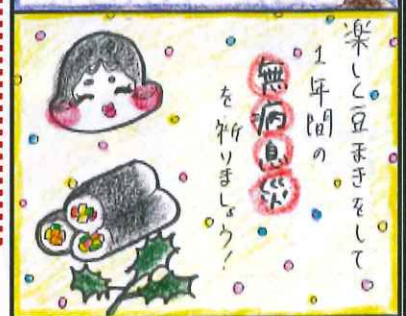 楽しく豆まきをして
1年間の
無病息災
を祈りましょう!